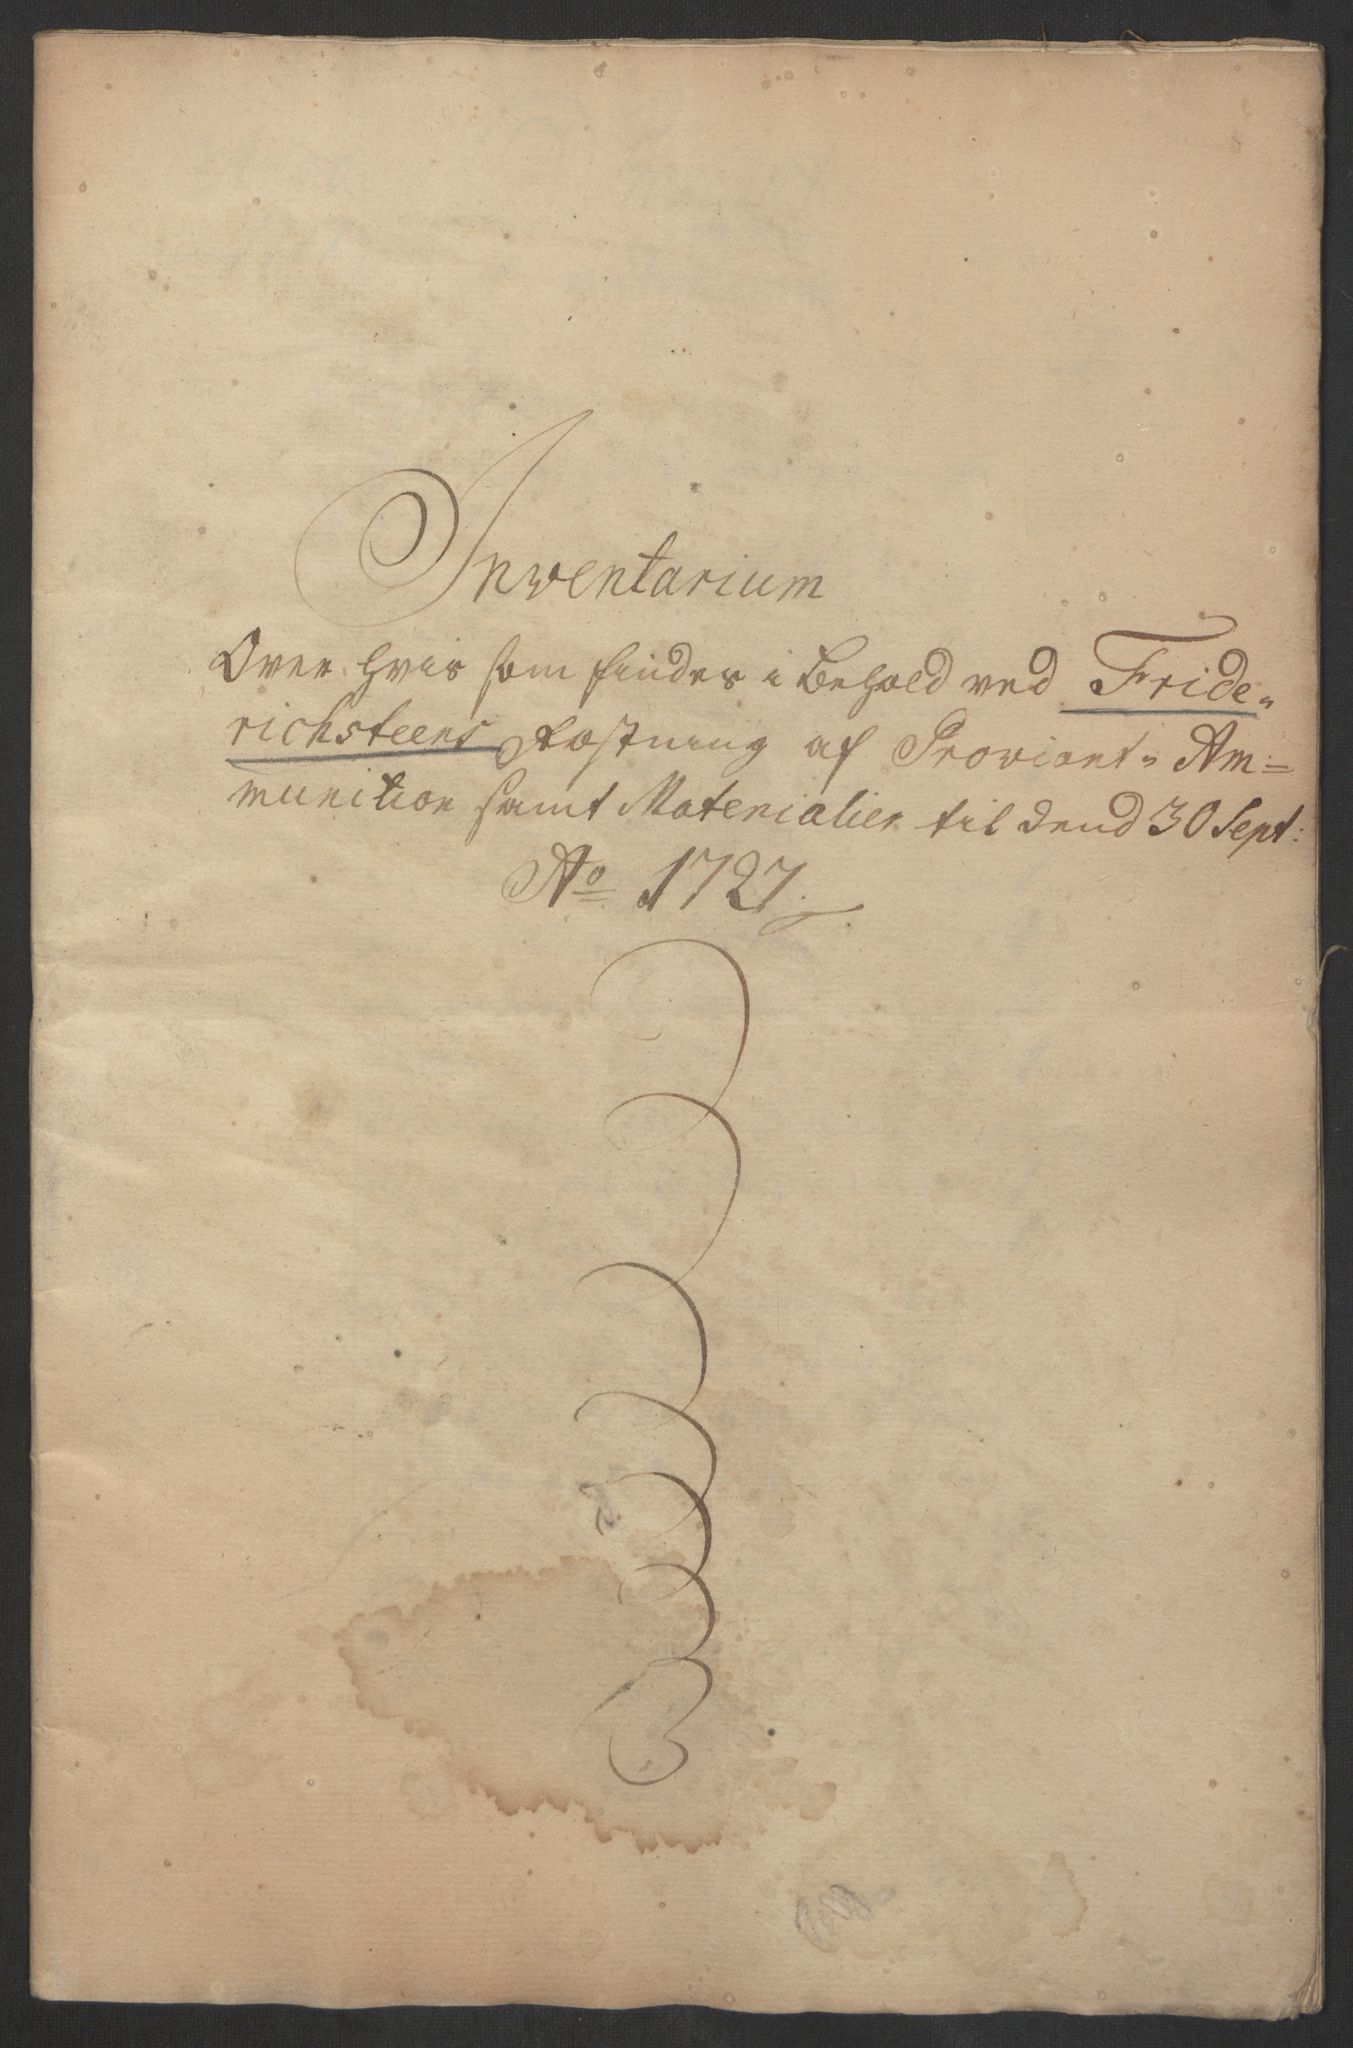 Inventarium
Over hvis som findes i Behold ved Fride„
richsteens Fæstning af Proviant„ Am=
munition samt Materialier til dend 30 Sept:
Aº 1727.